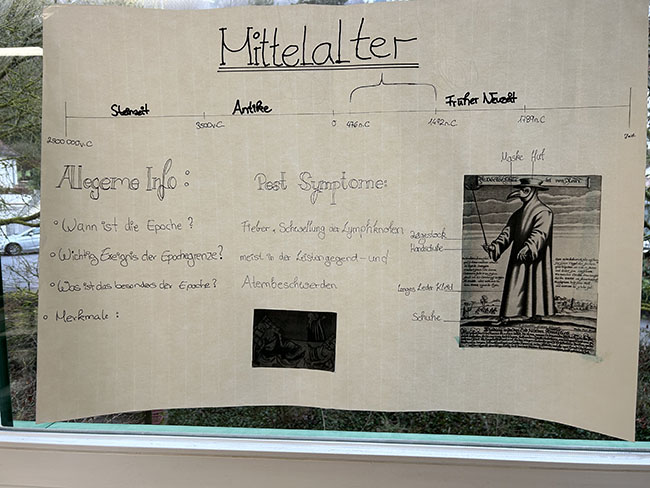 Mittelalter
Steinzeit Antike Früher Neuzeit
2500 000v.C 3500v.C 0 476n.C 1492n.C 1789n.C
Maske Hut
Allegeme Info:
Pest Symptome:
• Wann ist die Epoche?
• Wichtig Ereignis der Epochegrenze?
• Was ist das besonders der Epoche?
• Merkmale:
Fieber, Schwellung der Lymphknoten
meist in der Leistengegend - und
Atembeschwerden
Zeigestock
Handschuhe
Langes Leder Kleid
Schuhe